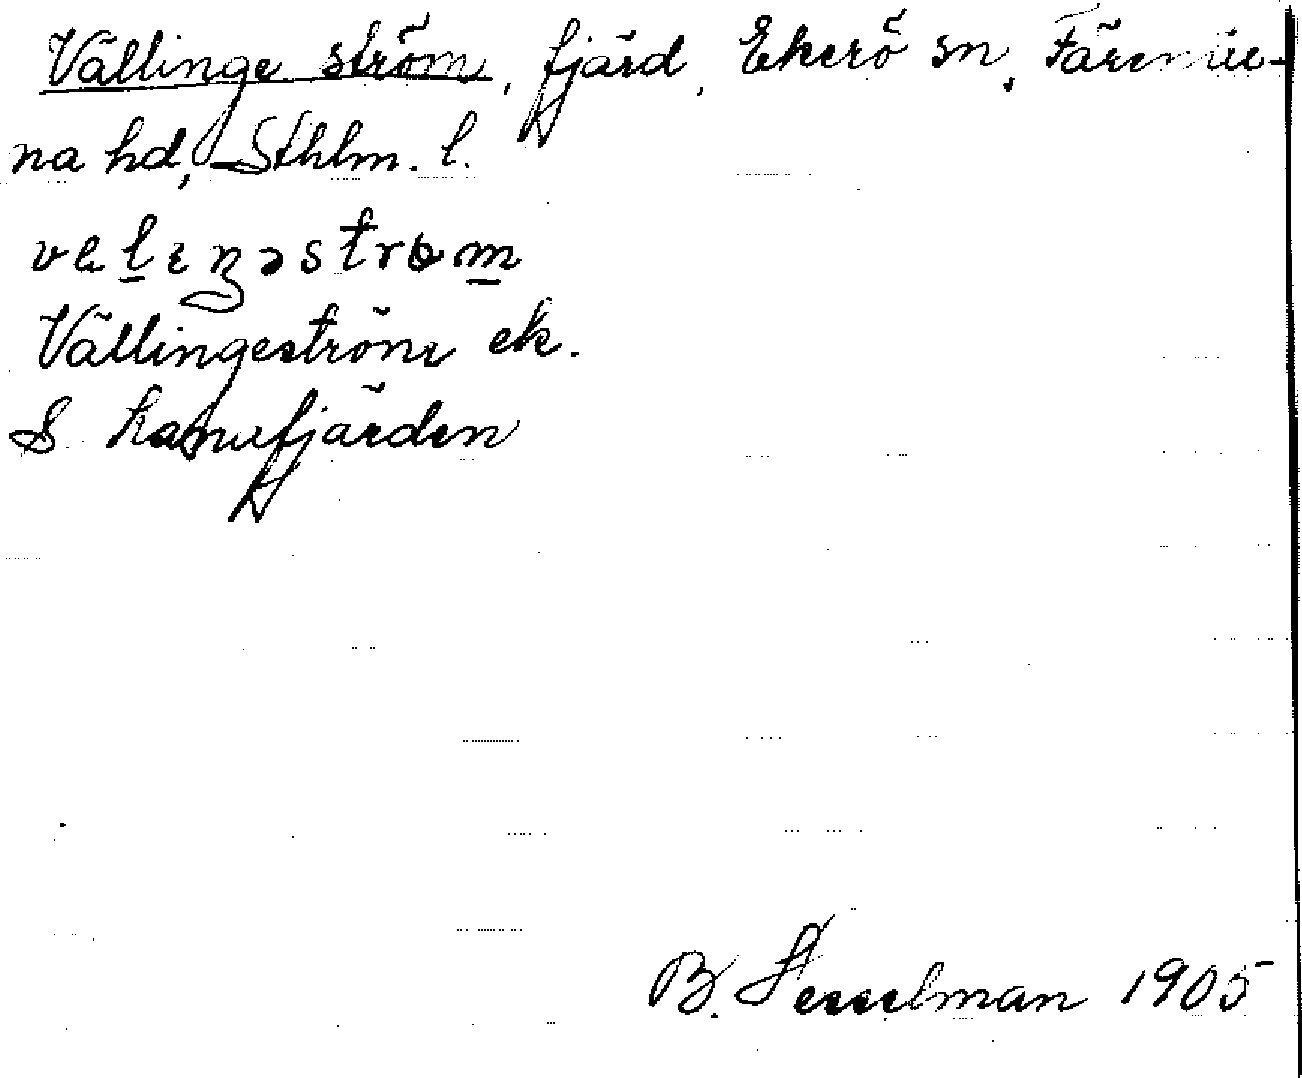 Vällinge ström, fjärd, Ekerö sn, Färentu-
na hd, Sthlm. l.
vɛlɩŋəstrɵm
Vällingeström ek.
S kanufjärden
B. Hesselman 1905